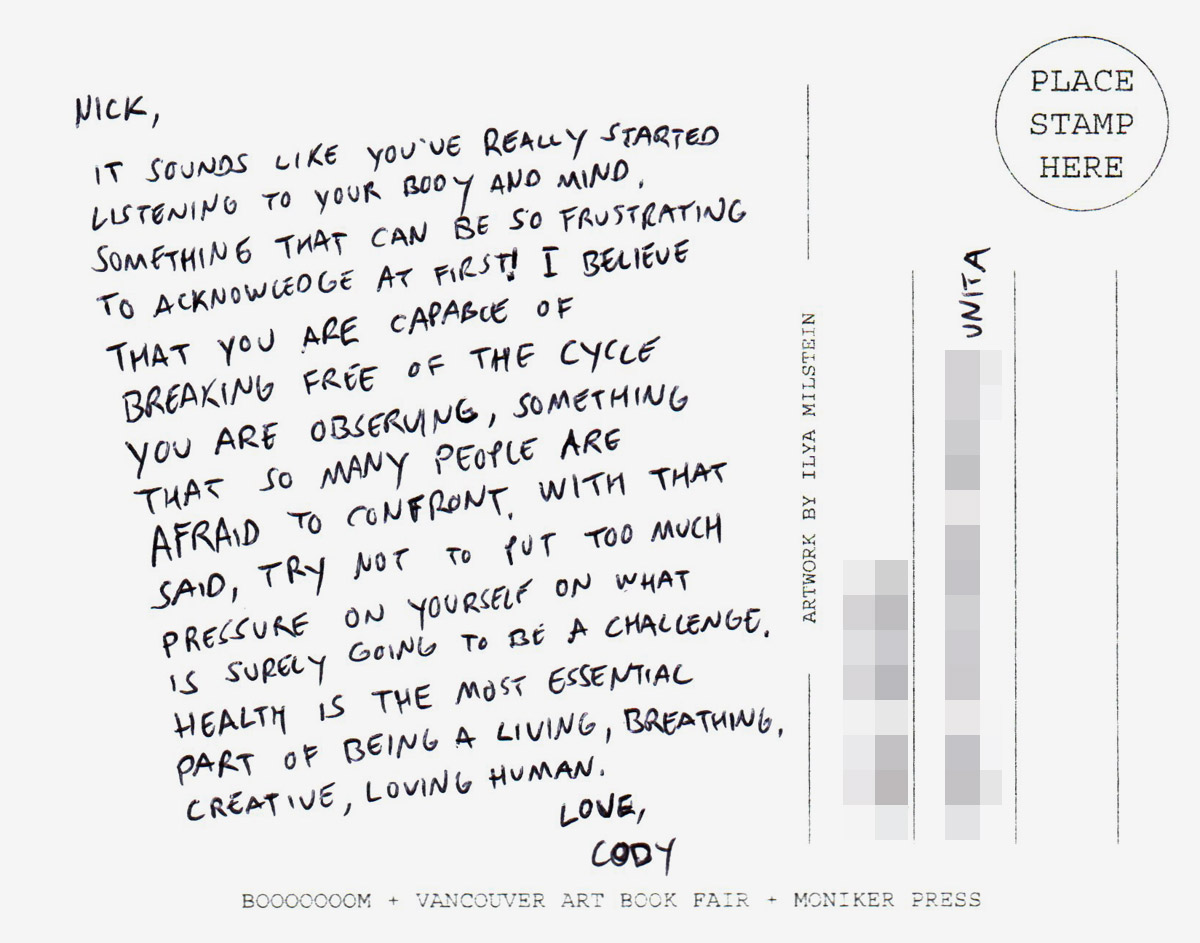 NICK,
IT SOUNDS LIKE YOU'VE REALLY STARTED
LISTENING TO YOUR BODY AND MIND,
SOMETHING THAT CAN BE SO FRUSTRATING
TO ACKNOWLEDGE AT FIRST! I BELIEVE
THAT YOU ARE CAPABLE OF
BREAKING FREE OF THE CYCLE
YOU ARE OBSERVING, SOMETHING
THAT SO MANY PEOPLE ARE
AFRAID TO CONFRONT. WITH THAT
SAID, TRY NOT TO PUT TOO MUCH
PRESSURE ON YOURSELF ON WHAT
IS SURELY GOING TO BE A CHALLENGE.
HEALTH IS THE MOST ESSENTIAL
PART OF BEING A LIVING, BREATHING,
CREATIVE, LOVING HUMAN.
LOVE,
CODY
PLACE
STAMP
HERE
ARTWORK BY ILYA MILSTEIN
UNITA
BOOOOOOOM + VANCOUVER ART BOOK FAIR + MONIKER PRESS